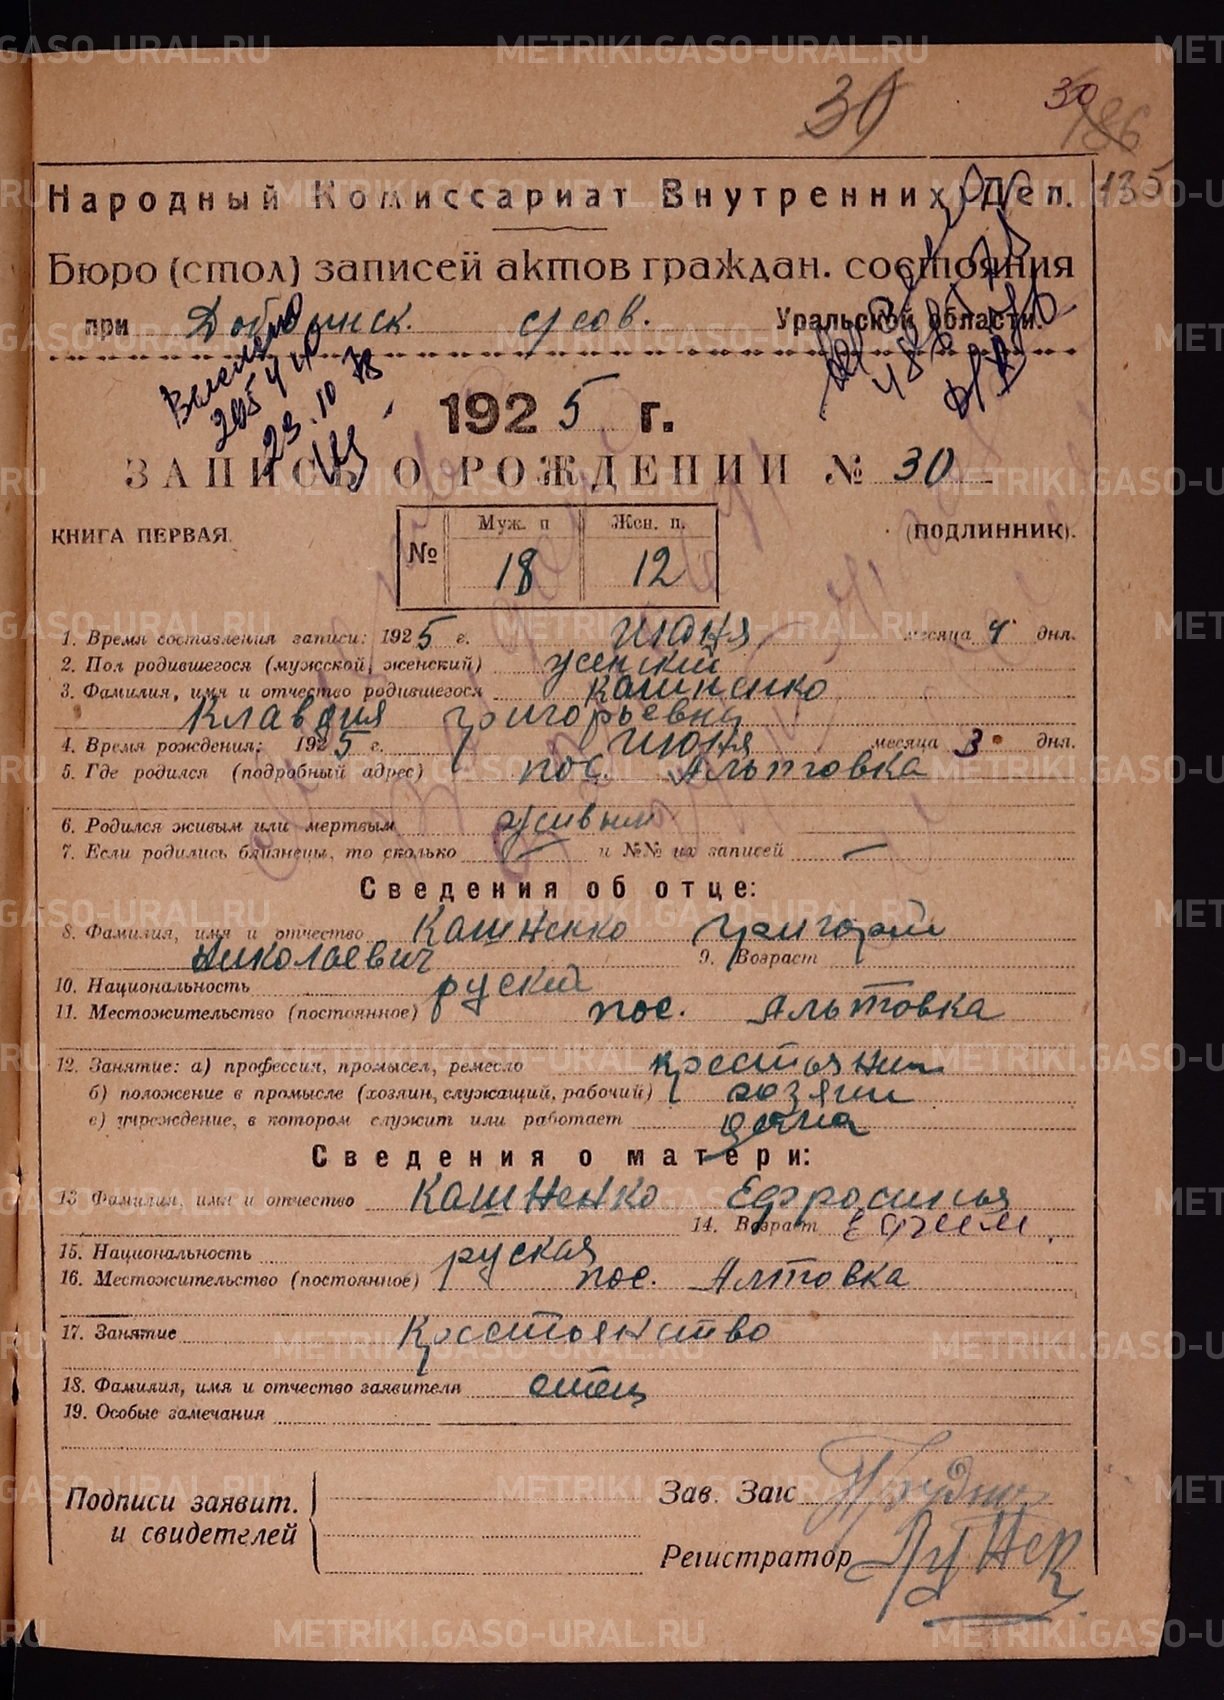 30 30 186
135
Народный Комиссариат Внутренних Дел.
Бюро (стол) записей актов граждан. состояния
при срсов. Уральской области.
205440
23.10 78
1925 г.
ЗАПИСЬ О РОЖДЕНИИ № 30
КНИГА ПЕРВАЯ. (ПОДЛИННИК).
Муж. п Жен. п.
№ 18 12
1. Время составления записи: 1925 г. Июня месяца 4 дня.
2. Пол родившегося (мужской, женский) женский
3. Фамилия, имя и отчество родившегося Кашненко
Клавдия Григорьевна
4. Время рождения: 1925 г. Июня месяца 3 дня.
5. Где родился (подробный адрес) пос. Альтовка
6. Родился живым или мертвым живым
7. Если родились близнецы, то сколько — и №№ их записей —
Сведения об отце:
8. Фамилия, имя и отчество Кашненко Григорий
Николаевич 9. Возраст
10. Национальность руский
11. Местожительство (постоянное) пос. Альтовка
12. Занятие: а) профессия, промысел, ремесло крестьянин
б) положение в промысле (хозяин, служащий, рабочий) хозяин
в) учреждение, в котором служит или работает дома
Сведения о матери:
13 Фамилия, имя и отчество Кашненко Ефросинья
14. Возраст
15. Национальность руская
16. Местожительство (постоянное) пос. Алтовка
17. Занятие Крестьянство
18. Фамилия, имя и отчество заявителя отец
19. Особые замечания
Подписи заявит. Зав. Загс
и свидетелей
Регистратор
METRIKI.GASO-URAL.RU